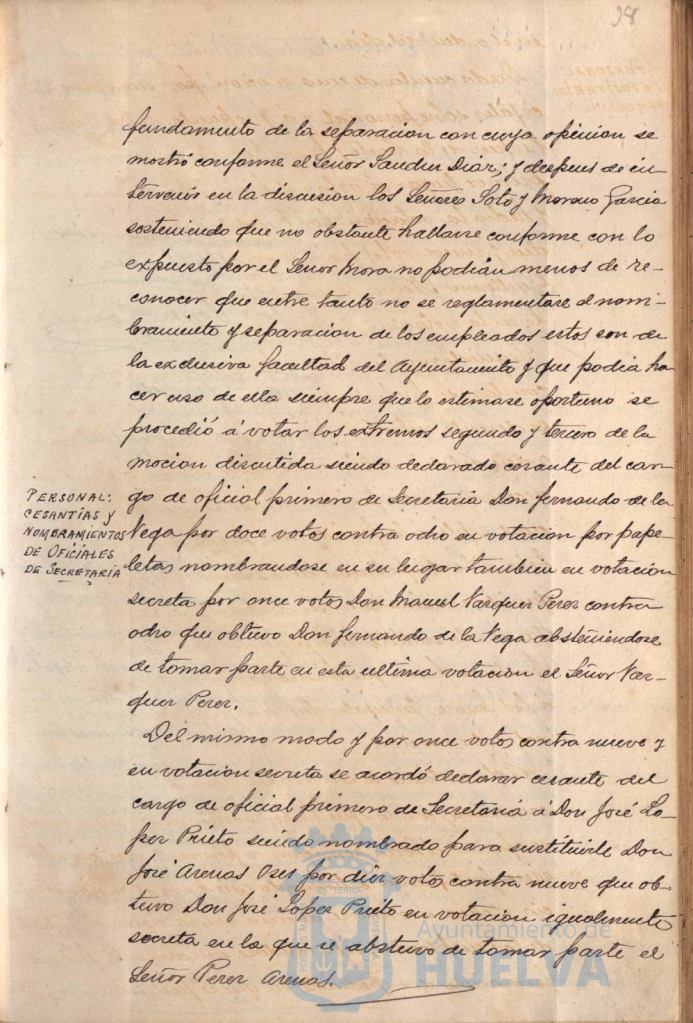 98
fundamento de la separacion con cuya opinion se
mostró conforme el Señor Saudin Diaz; y despues de in-
tervenir en la discusion los Señores Soto y Moreno Garcia
sosteniendo que no obstante hallarse conforme con lo
expuesto por el Señor Mora no podian menos de re-
conocer que entre tanto no se reglamentase el nom-
bramiento y separacion de los empleados estos son de
la exclusiva facultad del Ayuntamiento y que podia ha
cer uso de ella siempre que lo estimase oportuno se
procedió á votar los extremos segundo y tercero de la
mocion discutida siendo declarado cesante del car-
go de oficial primero de Secretaria Don Fernando de la
Vega por doce votos contra ocho en votacion por pape-
letas nombrandose en su lugar tambien en votacion
secreta por once votos Don Manuel Vazquez Perez contra
ocho que obtuvo Don Fernando de la Vega absteniendose
de tomar parte en esta ultima votacion el Señor Vaz-
quez Perez.
PERSONAL:
CESANTÍAS Y
NOMBRAMIENTOS
DE OFICIALES
DE SECRETARÍA
Del mismo modo y por once votos contra nueve y
en votacion secreta se acordó declarar cesante del
cargo de oficial primero de Secretaria á Don José Lo-
pez Prieto siendo nombrado para sustituirle Don
José Arenas Oses por diez votos contra nueve que ob-
tuvo Don José Lopez Prieto en votacion igualmente
secreta en la que se abstuvo de tomar parte el
Señor Perez Arenas.
Ayuntamiento de
HUELVA